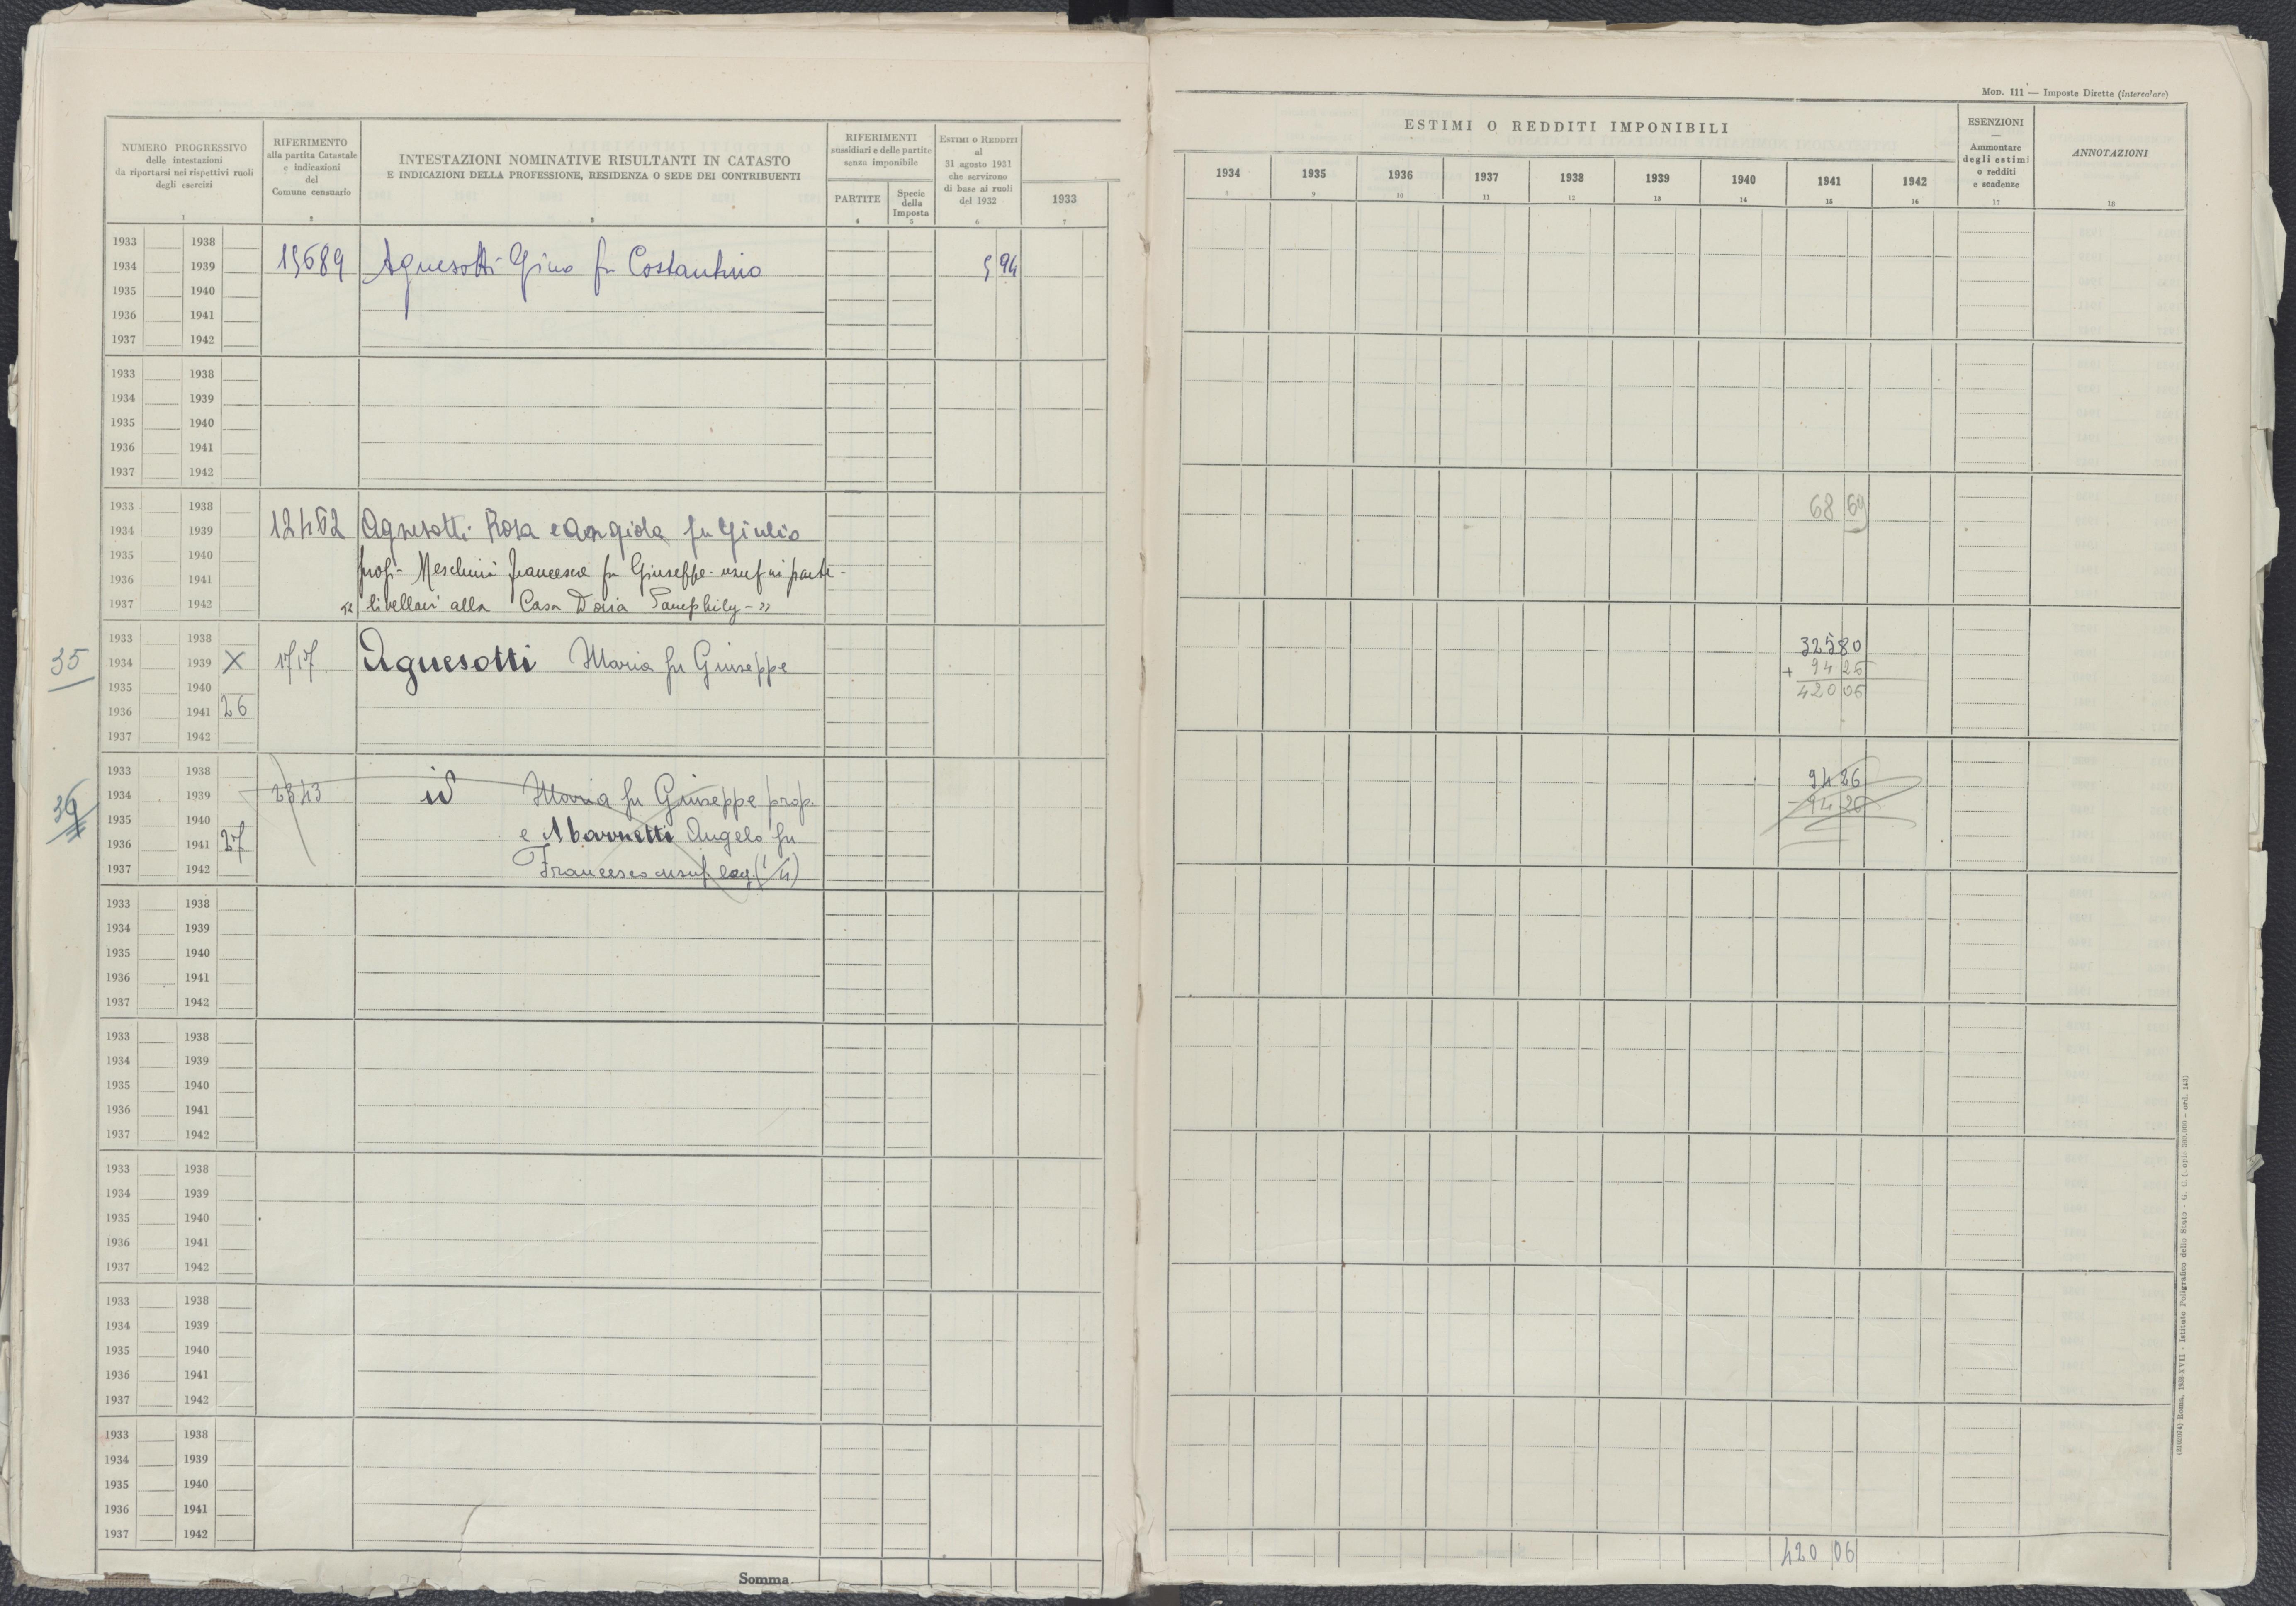 NUMERO PROGRESSIVO
delle intestazioni
da riportarsi nei rispettivi ruoli
degli esercizi
1
RIFERIMENTO
alla partita Catastale
e indicazioni
del
Comune censuario
2
INTESTAZIONI NOMINATIVE RISULTANTI IN CATASTO
E INDICAZIONI DELLA PROFESSIONE, RESIDENZA O SEDE DEI CONTRIBUENTI
3
RIFERIMENTI
sussidiari e delle partite
senza imponibile
PARTITE
4
Specie
della
Imposta
5
ESTIMI O REDDITI
al
31 agosto 1931
che servirono
di base ai ruoli
del 1932
6
1933
7
1933 1938
1934 1939 15689 Agnesotti Gino fu Costantino 5 94
1935 1940
1936 1941
1937 1942
1933 1938
1934 1939
1935 1940
1936 1941
1937 1942
1933 1938
1934 1939 Agnesotti Rosa e fu Giulio
1935 1940
1936 1941 Francesca fu Giuseppe usuf in parte -
1937 1942 « livellari alla Casa Doria Pamphily - »
1933 1938
35 1934 1939 X 1717 Agnesotti Maria fu Giuseppe
1935 1940
1936 1941 26
1937 1942
1933 1938
36 1934 1939 2343 id Maria fu Giuseppe prop.
1935 1940
1936 1941 27 e Angelo fu
1937 1942 Francesco usuf. (1/4)
1933 1938
1934 1939
1935 1940
1936 1941
1937 1942
1933 1938
1934 1939
1935 1940
1936 1941
1937 1942
1933 1938
1934 1939
1935 1940
1936 1941
1937 1942
1933 1938
1934 1939
1935 1940
1936 1941
1937 1942
1933 1938
1934 1939
1935 1940
1936 1941
1937 1942
Somma
MOD. 111 — Imposte Dirette (intercalare)
ESTIMI O REDDITI IMPONIBILI
1934 1935 1936 1937 1938 1939 1940 1941 1942
8 9 10 11 12 13 14 15 16
ESENZIONI
—
Ammontare
degli estimi
o redditi
e scadenze
17
ANNOTAZIONI
18
68 69
325 80
+ 94 26
420 06
94 26
- 94 26
420 06